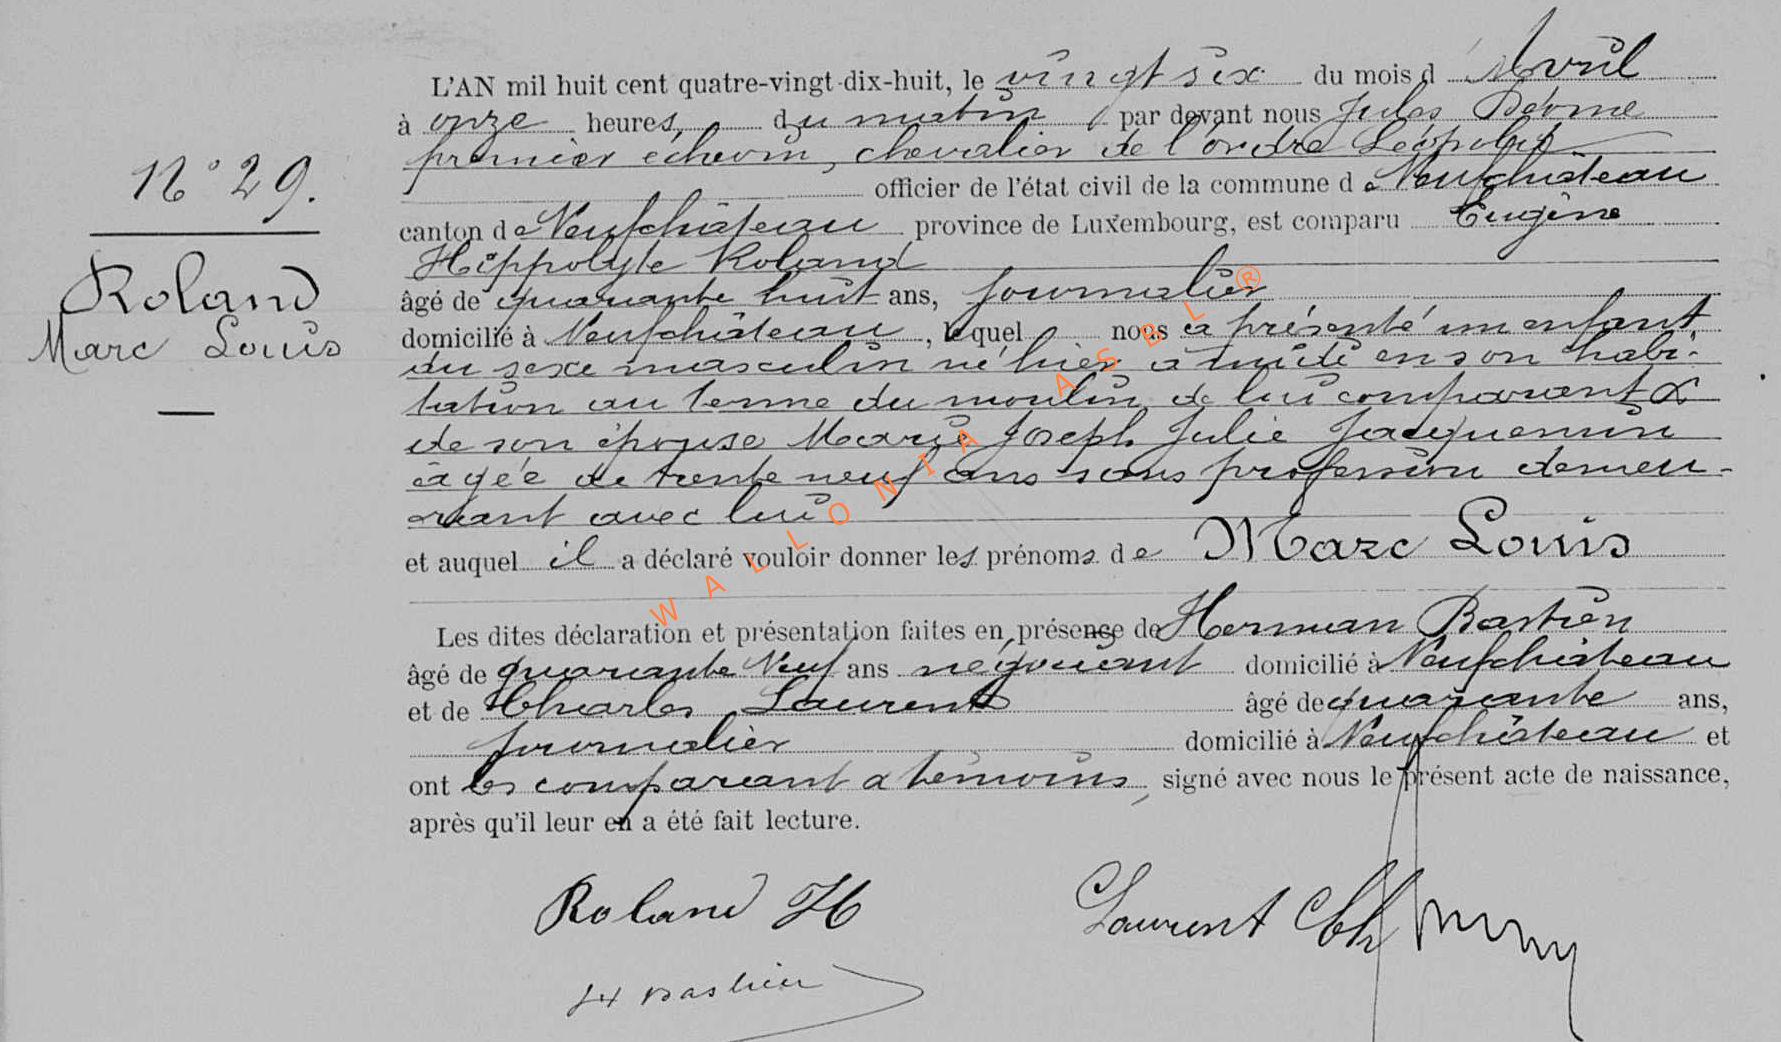 N° 29.
Roland
Marc Louis
L'AN mil huit cent quatre-vingt-dix-huit, le vingt six du mois d'Avril
à onze heures, du matin, par devant nous Jules
premier échevin, chevalier de l'ordre Léopold
officier de l'état civil de la commune de Neufchâteau
canton de Neufchâteau province de Luxembourg, est comparu Eugène
Hippolyte Roland
âgé de quarante huit ans, journalier
domicilié à Neufchâteau, lequel nous a présenté un enfant
du sexe masculin né hier à midi en son habi-
tation au terme du moulin, de lui comparant &
de son épouse Marie Joseph Julie Jacquemin
âgée de trente neuf ans sans profession demeu-
rant avec lui
et auquel il a déclaré vouloir donner les prénoms de Marc Louis
Les dites déclaration et présentation faites en présence de Herman Bastien
âgé de quarante Neuf ans négociant domicilié à Neufchâteau
et de Charles Laurent âgé de quarante ans,
journalier domicilié à Neufchâteau et
ont les comparant & témoins, signé avec nous le présent acte de naissance,
après qu'il leur en a été fait lecture.
Roland H
Laurent Ch
H Bastien
WALLONIA ASBL ®